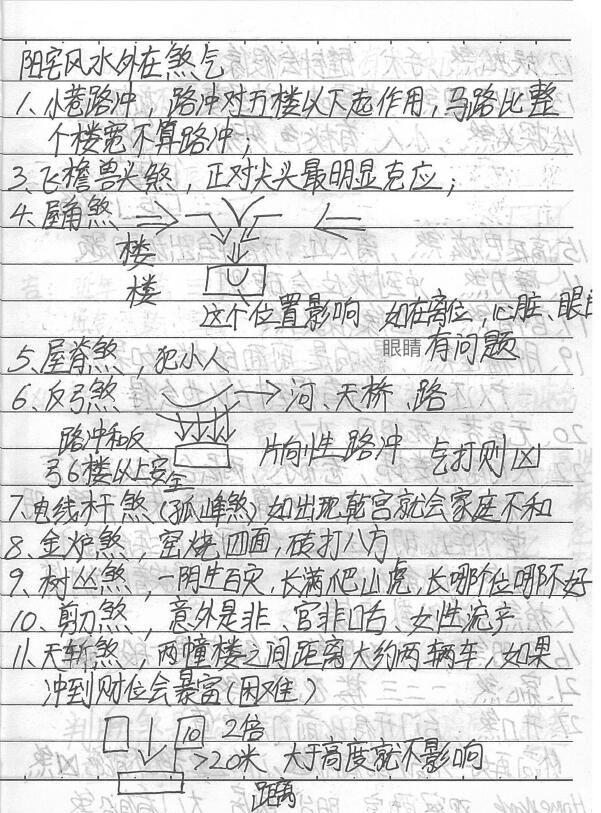 阳宅风水外在煞气
1、小巷路冲，路冲对五楼以下起作用，马路比整
个楼宽不算路冲；
3、飞檐兽头煞，正对尖头最明显克应；
4、屋角煞
楼
楼
这个位置影响 如在离位，心脏、眼睛
眼睛 有问题
5、屋脊煞，犯小人
6、反弓煞 河、天桥、路
路冲和反 片向性路冲 气打则凶
弓6楼以上安全
7、电线杆煞（孤峰煞）如出现乾宫就会家庭不和
8、金炉煞，窑烧四面，砖打八方
9、树丛煞，一阴生百灾，长满爬山虎，长哪个位哪不好
10、剪刀煞，意外是非、官非口舌、女性流产
11、天斩煞，两幢楼之间距离大约两辆车，如果
冲到财位会暴富（困难）
10 2倍
>20米 大于高度就不影响
距离